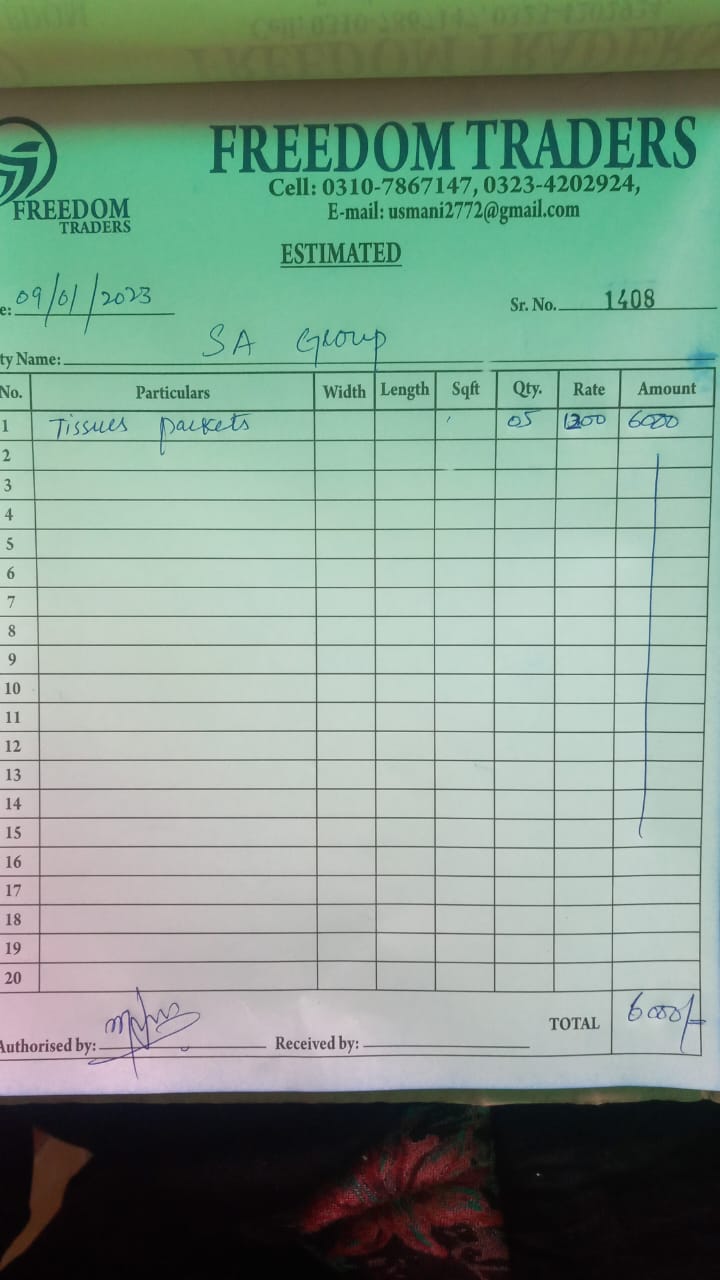 FREEDOM TRADERS
Cell: 0310-7867147, 0323-4202924,
E-mail: usmani2772@gmail.com
FREEDOM
TRADERS
ESTIMATED
e: 09/01/2023
Sr. No. 1408
ty Name: SA Group
No. Particulars Width Length Sqft Qty. Rate Amount
1 Tissues packets 05 1200 6000
2
3
4
5
6
7
8
9
10
11
12
13
14
15
16
17
18
19
20
TOTAL 6000/-
Authorised by: Received by: